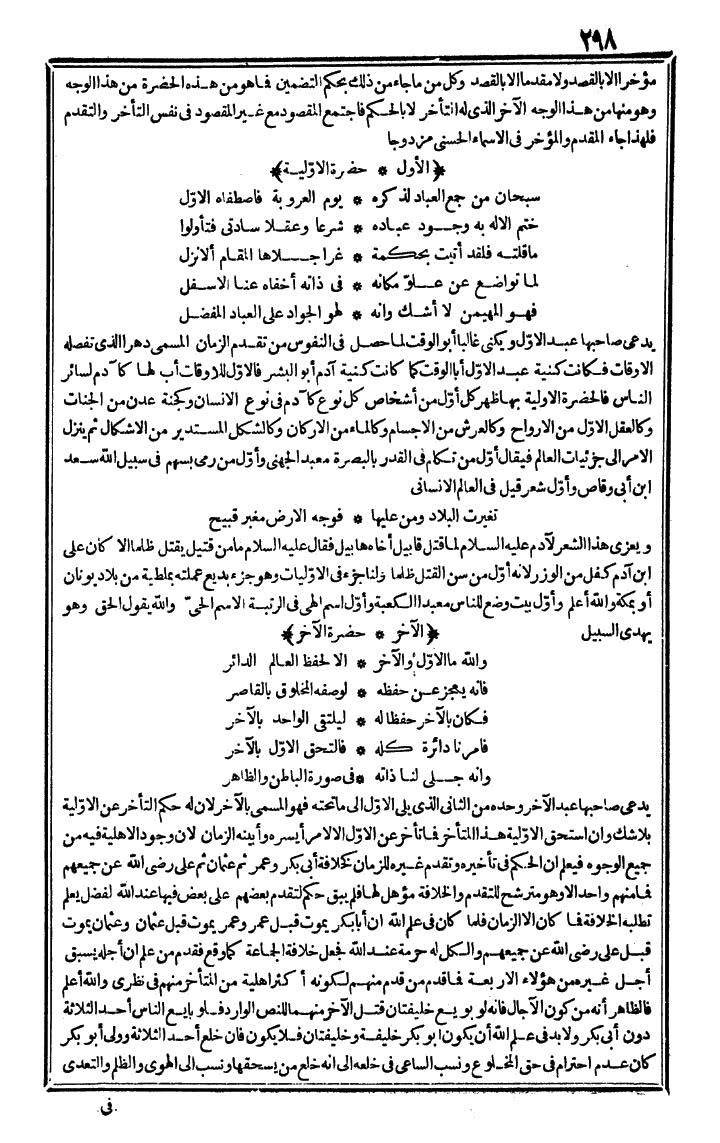 ٢٩٨
مؤخرا الا بالقصد ولا مقدما الا بالقصد وكل من ما جاء من ذلك بحكم التضمين فما هو من هذه الحضرة من هذا الوجه
وهو منها من هذا الوجه الآخر الذى له التأخر لا بالحكم فاجتمع المقصود مع غير المقصود فى نفس التأخر والتقدم
فلهذا جاء المقدم والمؤخر فى الاسماء الحسنى مزدوجا
﴿الأول * حضرة الاوّلية﴾
سبحان من جمع العباد لذكره * يوم العروبة فاصطفاه الاوّل
ختم الاله به وجود عباده * شرعا وعقلا سادتى فتأولوا
ما قلته فلقد أتيت بحكمة * غرا جلاها المقام الانزل
لما تواضع عن علوّ مكانه * فى ذاته أخفاه عنا الاسفل
فهو المهيمن لا أشك وانه * لهو الجواد على العباد المفضل
يدعى صاحبها عبد الاوّل ويكنى غالبا أبو الوقت لما حصل فى النفوس من تقدم الزمان المسمى دهرا الذى تفصله
الاوقات فكانت كنية عبد الاوّل أبا الوقت كما كانت كنية آدم أبو البشر فالاوّل للاوقات أب لها كا آدم لسائر
الناس فالحضرة الاولية بها ظهر كل أوّل من أشخاص كل نوع كآدم فى نوع الانسان وكجنة عدن من الجنات
وكالعقل الاوّل من الارواح وكالعرش من الاجسام وكالماء من الاركان وكالشكل المستدير من الاشكال ثم ينزل
الامر الى جزئيات العالم فيقال أوّل من تكلم فى القدر بالبصرة معبد الجهنى وأوّل من رمى بسهم فى سبيل الله سعد
ابن أبى وقاص وأوّل شعر قيل فى العالم الانسانى
تغيرت البلاد ومن عليها * فوجه الارض مغبر قبيح
ويعزى هذا الشعر لآدم عليه السلام لما قتل قابيل أخاه هابيل فقال عليه السلام ما من قتيل يقتل ظلما الا كان على
ابن آدم كفل من الوزر لانه أوّل من سن القتل ظلما ولنا جزء فى الاوّليات وهو جزء بديع عملته بملطية من بلاد يونان
أو بمكة والله أعلم وأوّل بيت وضع للناس معبد الكعبة وأوّل اسم الهى فى الرتبة الاسم الحىّ والله يقول الحق وهو
يهدى السبيل ﴿الآخر * حضرة الآخر﴾
والله ما الاوّل والآخر * الا لحفظ العالم الدائر
فانه يعجز عن حفظه * لوصفه المخلوق بالقاصر
فكان بالآخر حفظا له * ليلتقى الواحد بالآخر
فامرنا دائرة كله * فالتحق الاوّل بالآخر
وانه جلى لنا ذاته * فى صورة الباطن والظاهر
يدعى صاحبها عبد الآخر وحده من الثانى الذى يلى الاوّل الى ما تحته فهو المسمى بالآخر لان له حكم التأخر عن الاوّلية
بلا شك وان استحق الاوّلية هذا المتأخر فما تأخر عن الاوّل الا لامر أيسره وأبينه الزمان لان وجود الاهلية فيه من
جميع الوجوه فيعلم ان الحكم فى تأخيره وتقدم غيره للزمان كخلافة أبى بكر وعمر ثم عثمان ثم على رضى الله عن جميعهم
فما منهم واحد الا وهو مترشح للتقدم والخلافة مؤهل لها فلم يبق حكم لتقدم بعضهم على بعض فيها عند الله لفضل يعلم
تطلبه الخلافة فما كان الا الزمان فلما كان فى علم الله ان أبا بكر يموت قبل عمر وعمر يموت قبل عثمان وعثمان يموت
قبل على رضى الله عن جميعهم والكل له حرمة عند الله فجعل خلافة الجماعة كما وقع فقدم من علم ان أجله يسبق
أجل غيره من هؤلاء الاربعة فما قدم من قدم منهم لكونه أكثر اهلية من المتأخر منهم فى نظرى والله أعلم
فالظاهر أنه من كون الآجال فانه لو بويع خليفتان قتل الآخر منهما للنص الوارد فلو بايع الناس أحد الثلاثة
دون أبى بكر ولا بد فى علم الله أن يكون ابو بكر خليفة وخليفتان فلا يكون فان خلع أحد الثلاثة وولى أبو بكر
كان عدم احترام فى حق المخلوع ونسب الساعى فى خلعه الى انه خلع من يستحقها ونسب الى الهوى والظلم والتعدى
فى